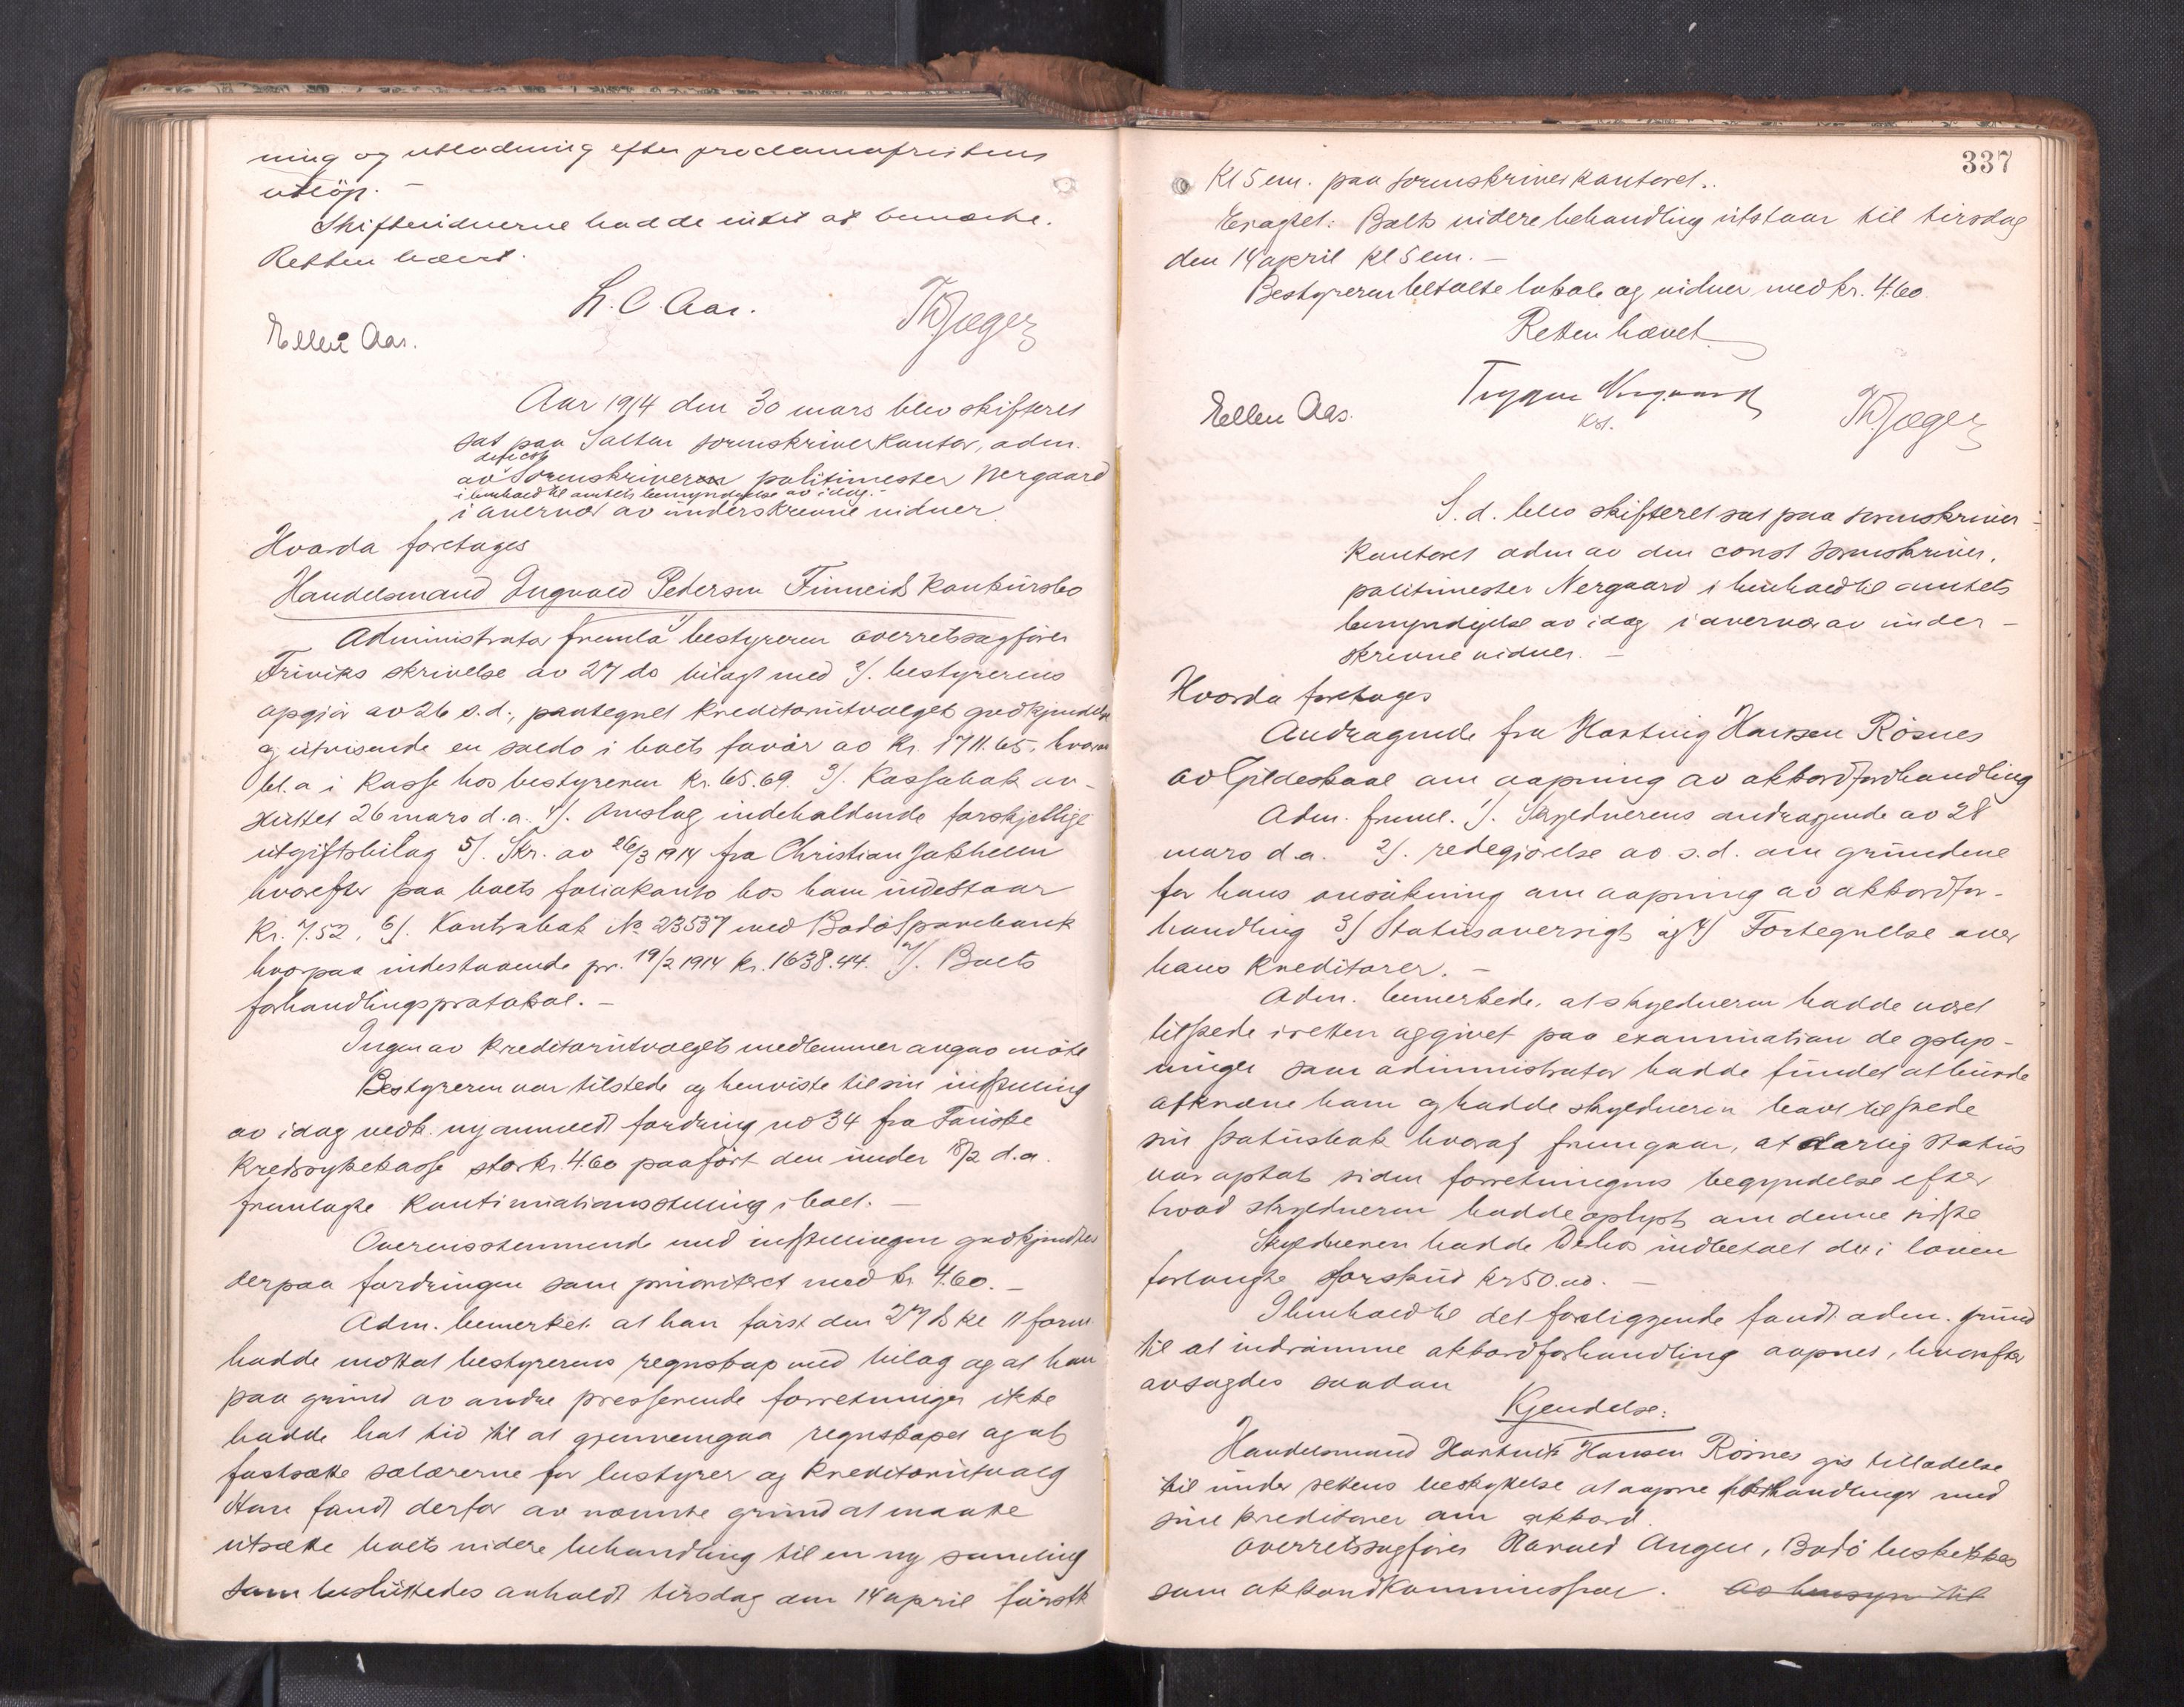 ning og utlodning efter proclamafristens
utløp. –
Skiftevidnerne hadde intet at bemærke.
Retten hævet.
L. C. Aas.
Ellen Aas.
Th Jæger
Aar 1914 den 30 mars blev skifteret
sat paa Salten sorenskriverkontor, adm.
av Sorenskriveren politimester Nergaard
i henhold til amtets bemyndigelse av idag. –
i anvervær av underskrevne vidner
Hvorda foretages
Handelsmand Ingvald Pedersen Finneids konkursbo
Administrator fremla 1/ bestyreren overretssagfører
Friviks skrivelse av 27 ds bilagt med 2/. bestyrerens
opgjør av 26 s.d., paategnet kreditorutvalgets godkjendelse
og utvisende en saldo i boets favør av kr. 1711.65, hvorav
bl.a i kasse hos bestyreren kr. 65.69. 3/. Kassabok av-
sluttet 26 mars d.a. 4/. Omslag indeholdende forskjellige
utgiftsbilag 5/. Skr. av 26/3 1914 fra Christian Jakhelln
hvorefter paa boets foliokonto hos ham indestaar
Kr. 7.52, 6/. Kontrabok No 23537 med Bodø Sparebank
hvorpaa indestaaende pr. 19/2 1914 kr. 1638.44. 7/. Boets
forhandlingsprotokol. –
Ingen av kreditorutvalgets medlemmer avgav møte
Bestyreren var tilstede og henviste til sin indstilling
av idag vedk. ny anmeldt fordring no 34 fra Fauske
Kredssykekasse stor kr. 4.60 paaført den under 18/2 d.a.
fremlagte kontinuationsstilling i boet. –
Overensstemmende med instillingen godkjendtes
derpaa fordringen som prioritert med kr. 4.60. –
Adm. bemerket at han først den 27 ds kl 11 form.
hadde mottat bestyrerens regnskap med bilag og at han
paa grund av andre presserende forretninger ikke
hadde hat tid til at gjennemgaa regnskapet og at
fastsætte salærerne for bestyrer og kreditorutvalg
Han fandt derfor av nævnte grund at maatte
utsætte boets videre behandling til en ny samling
som besluttedes anholdt tirsdag den 14 april førstk
337
Kl 5 em. paa sorenskriverkontoret.
Eragtet: Boets videre behandling utstaar til tirsdag
den 14 april kl 5 em. –
Bestyreren betalte lokale og vidner med kr. 4.60.
Retten hævet
Ellen Aas.
Th Jæger
S. d. blev skifteret sat paa sorenskriver-
kontoret adm av den const sorenskriver,
politimester Nergaard i henhold til amtets
bemyndigelse av idag i anvervær av under-
skrevne vidner. –
Hvorda foretages
Andragende fra Hartvig Hansen Røsnes
av Gildeskaal om aapning av akkordforhandling
Adm. freml. 1/. Skyldnerens andragende av 28
mars d.a. 2/. redegjørelse av s.d. om grundene
for hans ansøkning om aapning av akkordfor-
handling 3/ Statusoversigt og 4/ Fortegnelse over
hans kreditorer. –
Adm. bemerkede, at skyldneren hadde været
tilstede i retten og givet paa examination de oplys-
ninger som administrator hadde fundet at burde
afkræve ham og hadde skyldneren havt tilstede
sin statusbok hvoraf fremgaar, at aarlig status
var optat siden forretningens begyndelse efter
hvad skyldneren hadde oplyst om denne siste
Skyldneren hadde indbetalt det i loven
forlangte forskud kr 50.00. –
I henhold til det foreliggende fandt adm. grund
til at indrømme akkordforhandling aapnet, hvorefter
avsagdes saadan
Kjendelse:
Handelsmand Hartvik Hansen Røsnes gis tilladelse
til under rettens beskyttelse at aapne forhandlinger med
sine kreditorer om akkord.
Overretssagfører Harald Angell, Bodø beskikkes
som akkordkommissær. Av hensyn til